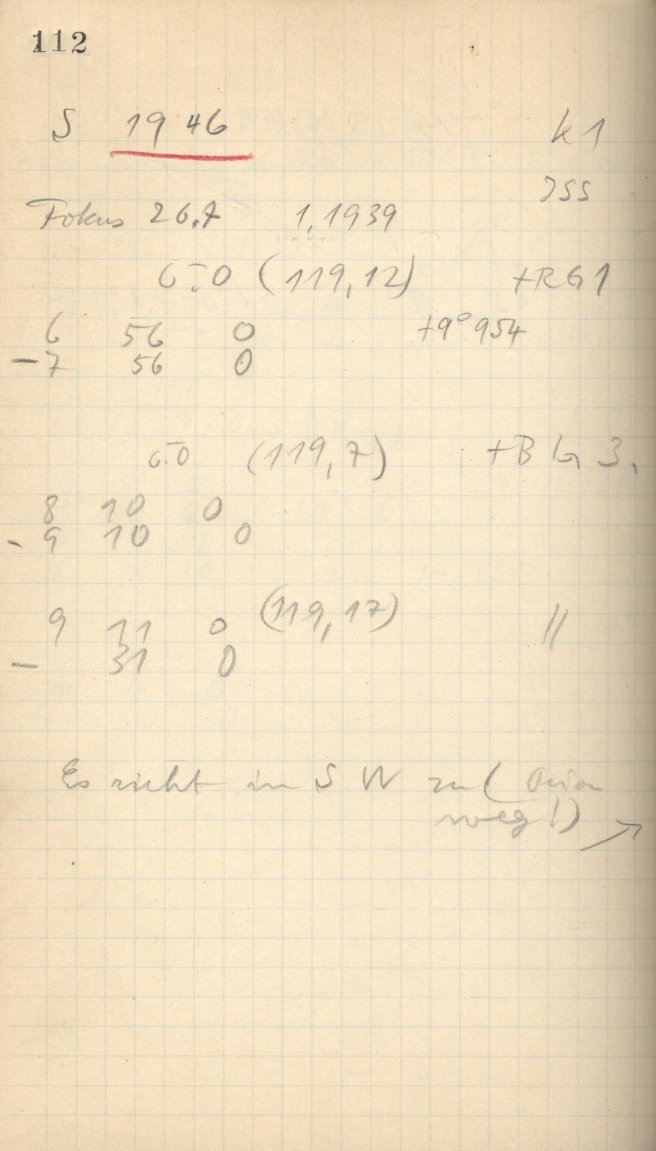 112
S 1946 k1
JSS
Fokus 26.7 1,1939
(119,12) +RG1
6 56 0 +9°954
-7 56 0
(119,7) +B G 3.
8 10 0
- 9 10 0
9 11 0 (119,17) //
- 31 0
Es zieht in SW zu (Orion
weg!)